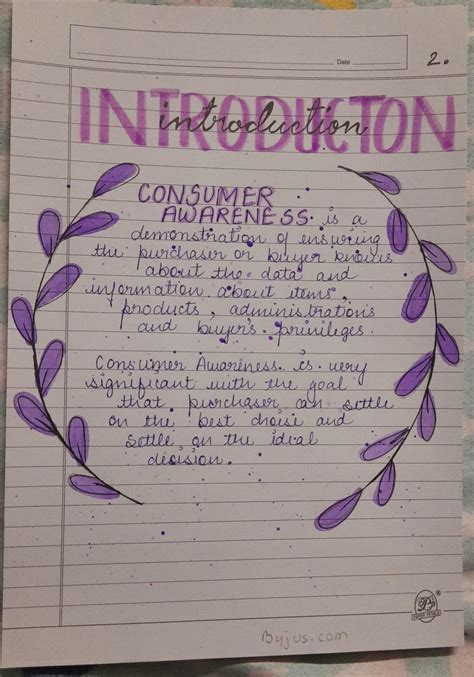 Date
2.
INTRODUCTON
introduction
CONSUMER
AWARENESS. is a
demonstration of ensuring
the purchaser or buyer knows
about the data and
information about items,
products, administrations
and buyer's privileges.
Consumer Awariness. is very
significant with the goal
that purchaser can settle
on the best choise and
settle on the ideal
decision.
Byjus.com